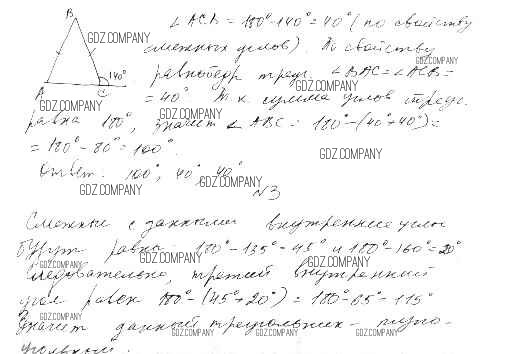 B
∠ACB = 180°-140° = 40° (по свойству
GDZ.COMPANY
смежных углов). По свойству
GDZ.COMPANY
140°
равнобедр треуг. ∠BAC = ∠ACB =
GDZ.COMPANY
A C
= 40° Т к сумма углов треуг.
GDZ.COMPANY
GDZ.COMPANY
равна 180°, значит ∠ABC = 180°-(40°+40°)=
= 180°-80° = 100°.
GDZ.COMPANY
Ответ. 100°, 40°, 40°
GDZ.COMPANY GDZ.COMPANY
N3
Смежные с данными внутренние углы
будут равны 180°-135°=45° и 180°-160°=20°
GDZ.COMPANY GDZ.COMPANY GDZ.COMPANY
Следовательно, третий внутренний
угол равен 180°-(45°+20°) = 180°-65°=115°
GDZ.COMPANY
Значит данный треугольник - тупо-
GDZ.COMPANY GDZ.COMPANY GDZ.COMPANY
угольный.